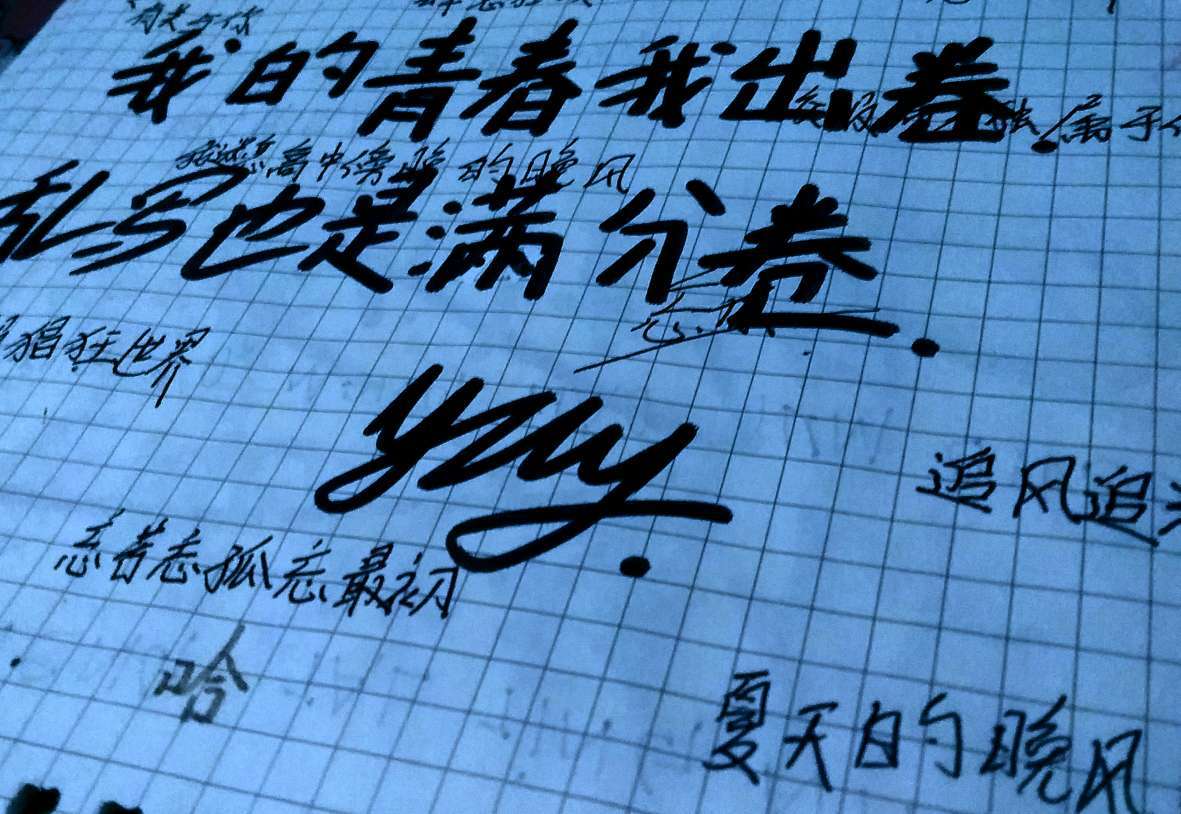 我的青春我出卷.
属于
的晚风
乱写也是满分卷.
猖狂世界
yuy.
追风追
忘苦忘孤忘最初
哈
夏天的晚风